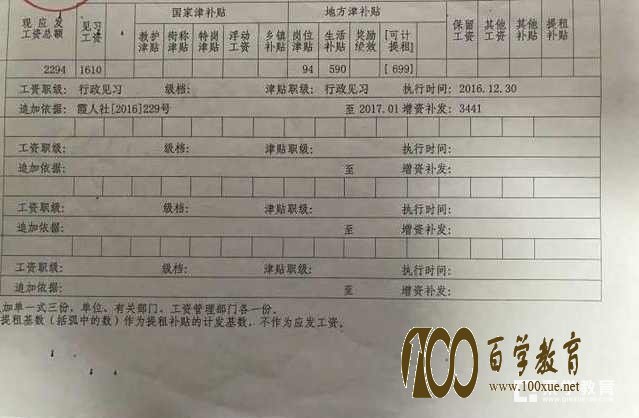 现应发工资总额 见习工资 国家津补贴 地方津补贴 保留工资 其他工资 其他补贴 提租补贴
教护津贴 衔称津贴 特岗津贴 浮动工资 乡镇补贴 岗位津贴 生活补贴 奖励绩效 [可计提租]
2294 1610 94 590 [699]
工资职级: 行政见习 级档: 津贴职级: 行政见习 执行时间: 2016.12.30
追加依据: 霞人社[2016]229号 至 2017.01 增资补发: 3441
工资职级: 级档: 津贴职级: 执行时间:
追加依据: 至 增资补发:
工资职级: 级档: 津贴职级: 执行时间:
追加依据: 至 增资补发:
工资职级: 级档: 津贴职级: 执行时间:
追加依据: 至 增资补发:
加单一式三份，单位、有关部门、工资管理部门各一份。
提租基数（括弧中的数）作为提租补贴的计发基数，不作为应发工资。
100 百学教育
www.100xue.net